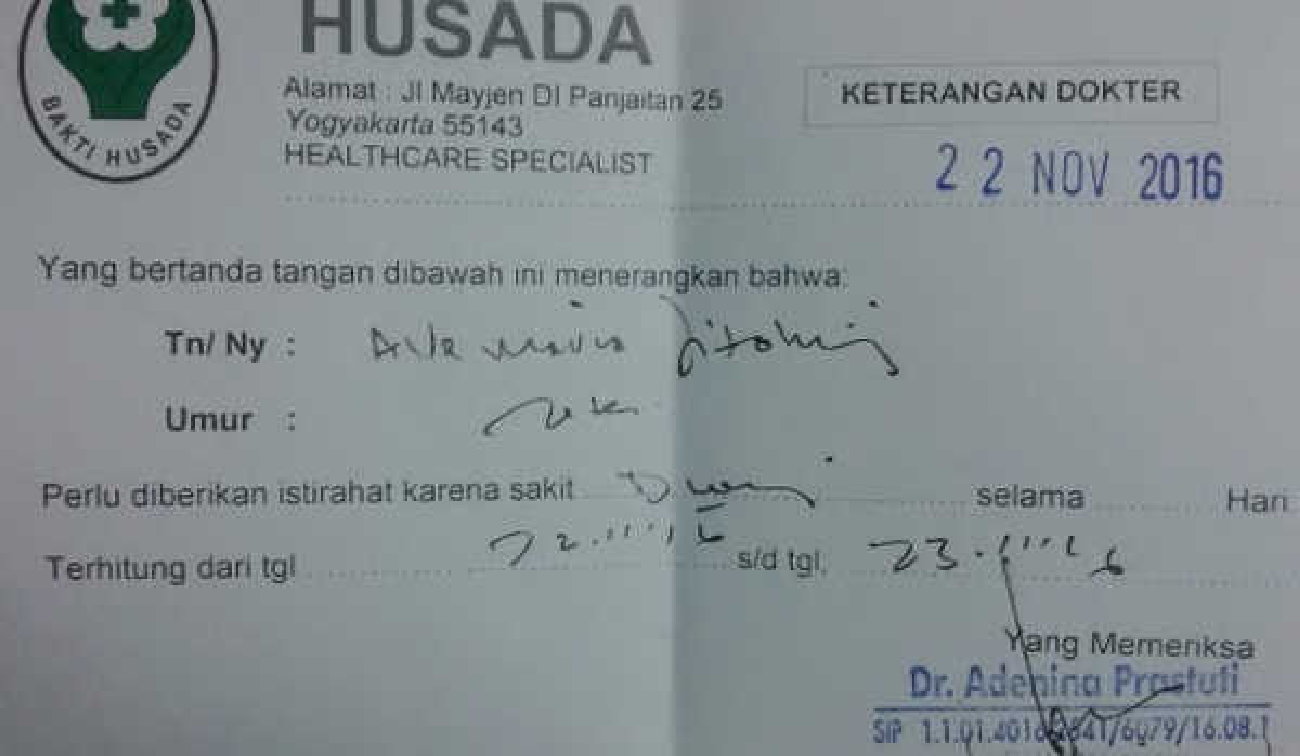 HUSADA
BAKTI HUSADA
Alamat : Jl Mayjen DI Panjaitan 25
Yogyakarta 55143
HEALTHCARE SPECIALIST
KETERANGAN DOKTER
22 NOV 2016
Yang bertanda tangan dibawah ini menerangkan bahwa:
Tn/ Ny :
Umur :
Perlu diberikan istirahat karena sakit selama Hari
Terhitung dari tgl 22.11.16 s/d tgl, 23.11.16
Yang Memeriksa
Dr. Adenina Prastuti
SIP